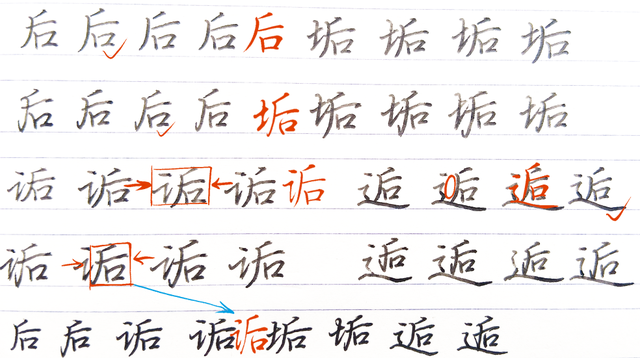 后 后 后 后 后 垢 垢 垢 垢
后 后 后 后 垢 垢 垢 垢 垢
诟 诟 诟 诟 诟 逅 逅 逅 逅
诟 诟 诟 诟 逅 逅 逅 逅
后 后 诟 诟 诟 垢 垢 逅 逅